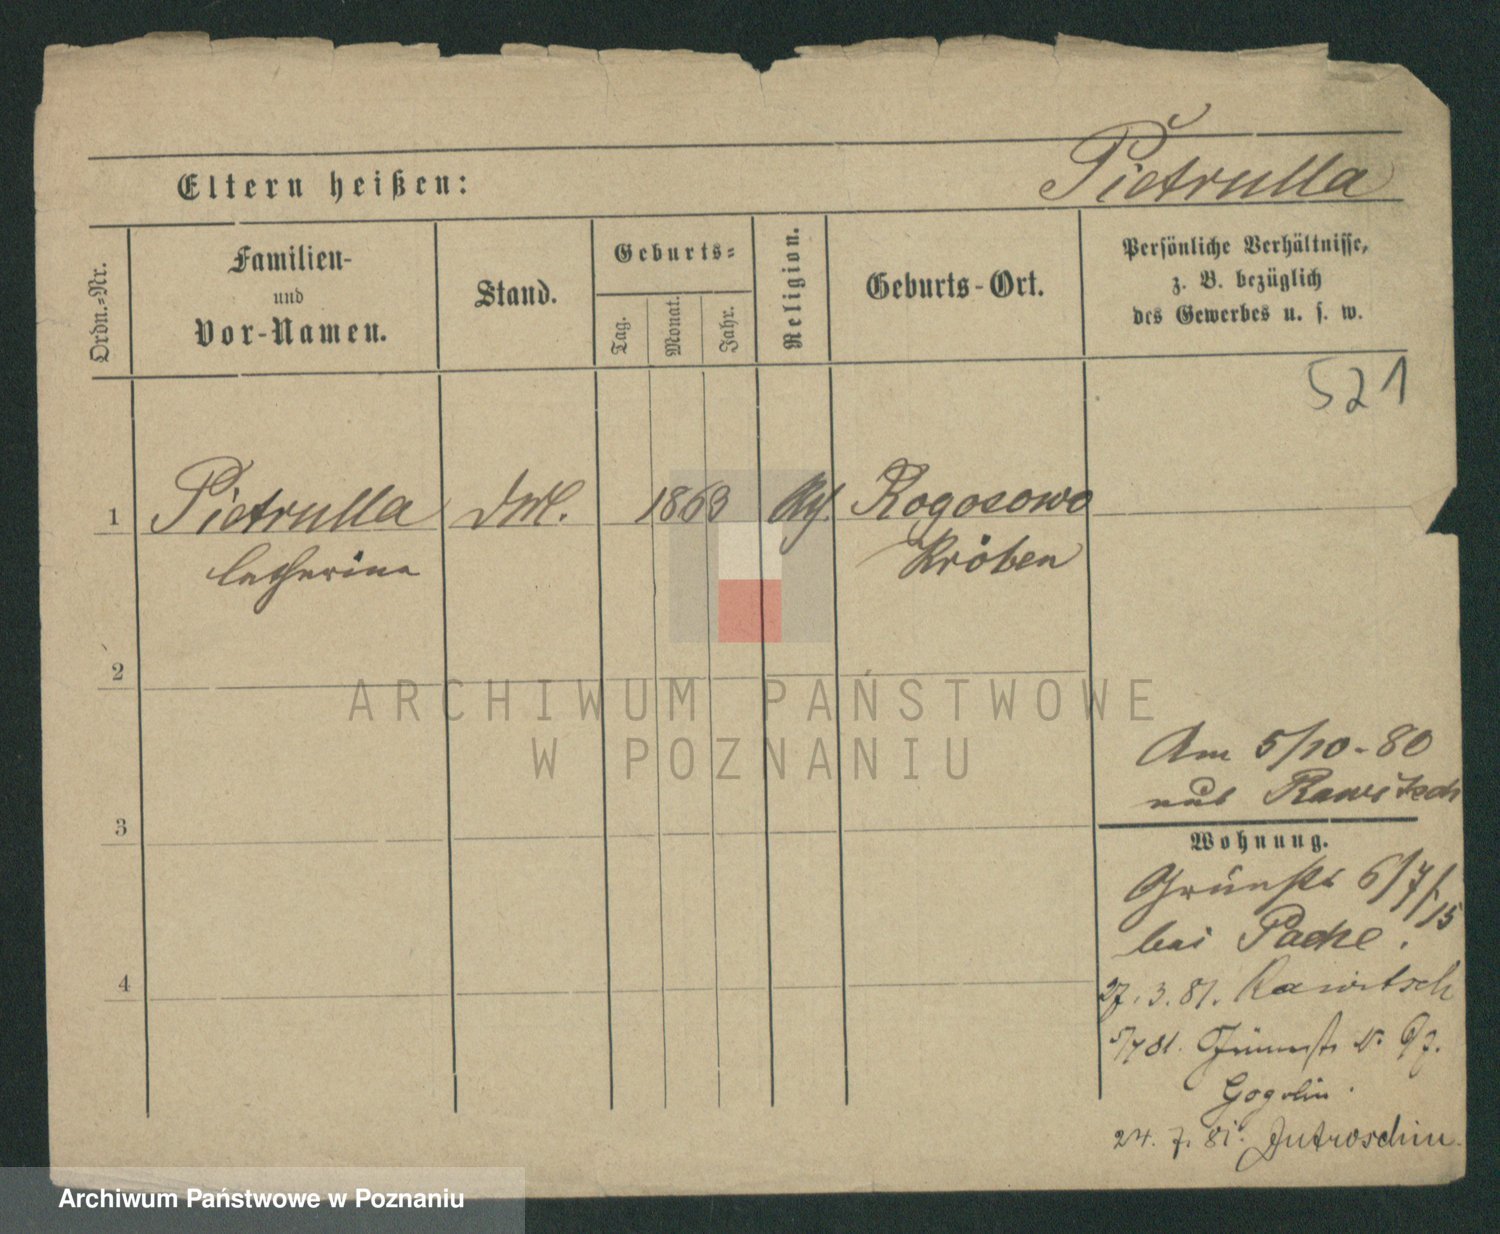 Pietrulla
Eltern heißen:
Ordn.-Nr.
Familien-
und
Vor-Namen.
Stand.
Geburts-
Tag.
Monat.
Jahr.
Religion.
Geburts-Ort.
Persönliche Verhältnisse,
z. B. bezüglich
des Gewerbes u. s. w.
521
1 Pietrulla 1863 Rogosowo
Catharina Kröben
2
3
4
Am 5/10-80
aus Rawitsch
Wohnung.
Grünstr 6/7/15
bei Pache.
27.3.81. Rawitsch
5/7 81. 6/7.
Gogolin.
24. 7. 81. Jutroschin.
ARCHIWUM PAŃSTWOWE
W POZNANIU
Archiwum Państwowe w Poznaniu